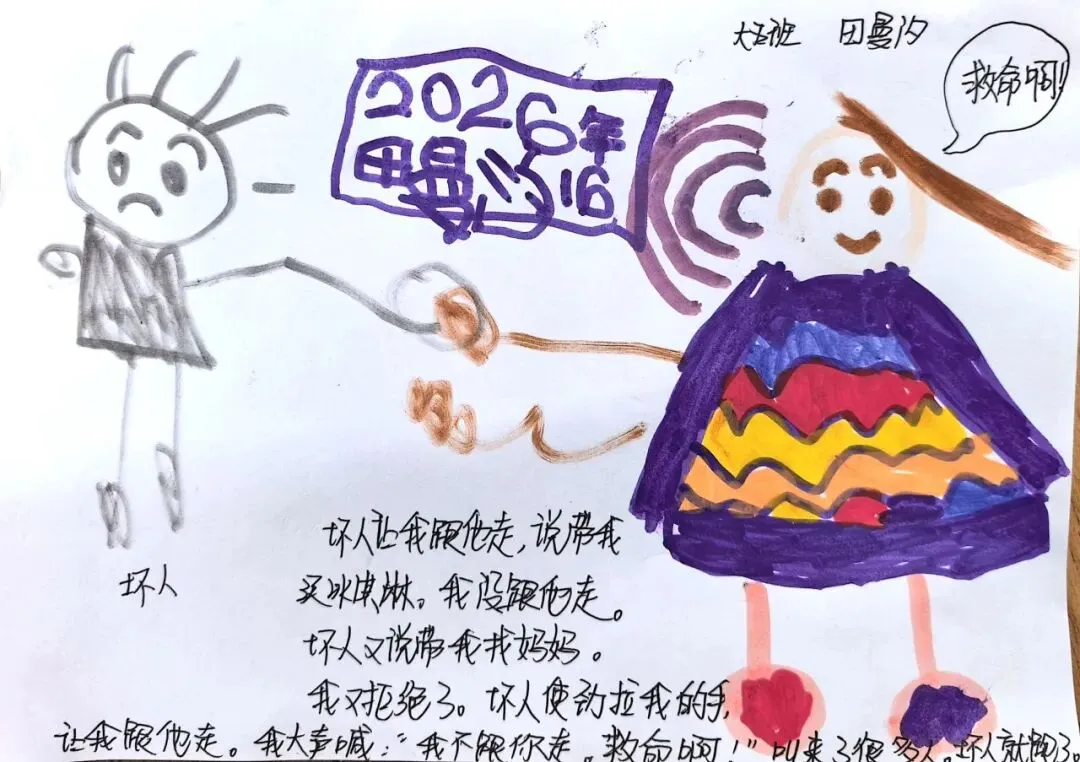 大五班 田曼汐
救命啊!
2026年
田曼汐 16
坏人
坏人让我跟他走,说带我
买冰淇淋。我没跟他走。
坏人又说带我找妈妈。
我又拒绝了。坏人使劲拉我的手,
让我跟他走。我大声喊:“我不跟你走。救命啊!”叫来了很多人。坏人就跑了。